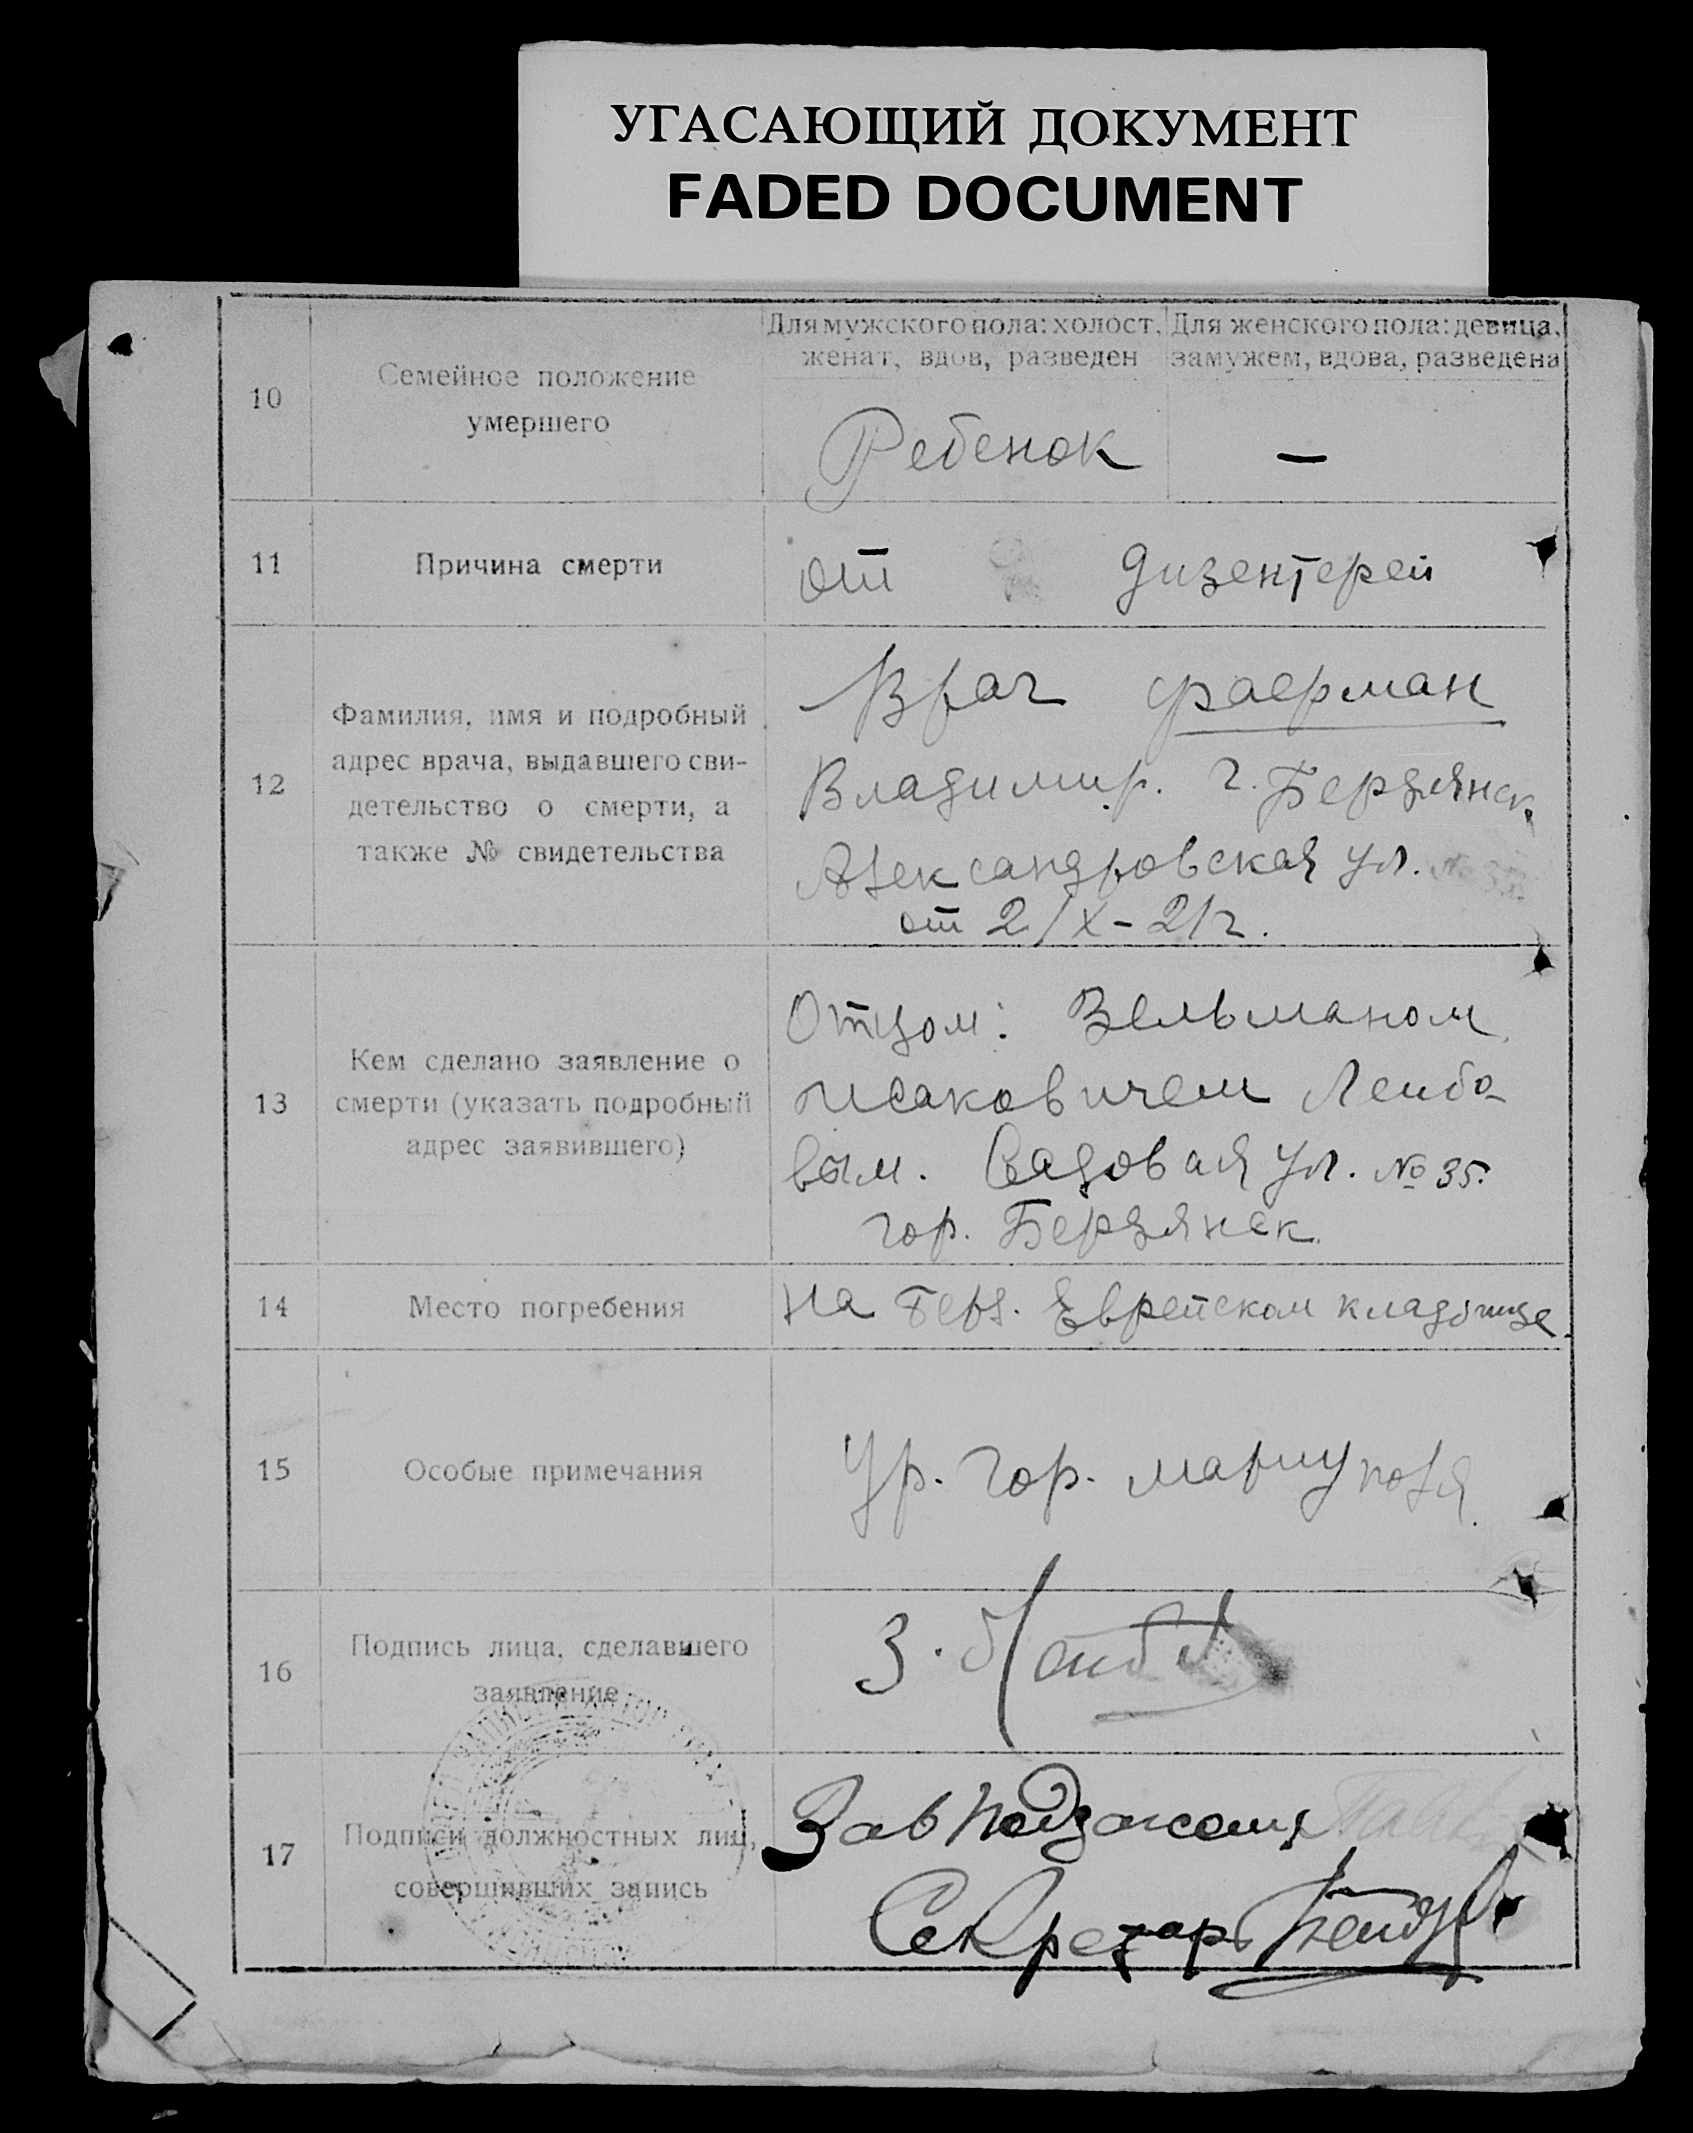 УГАСАЮЩИЙ ДОКУМЕНТ
FADED DOCUMENT
10
Семейное положение
умершего
Для мужского пола: холост,
женат, вдов, разведен
Для женского пола: девица,
замужем, вдова, разведена
Ребенок
—
11
Причина смерти
от дизентереи
12
Фамилия, имя и подробный
адрес врача, выдавшего сви-
детельство о смерти, а
также № свидетельства
Врач Фаерман
Владимир. г. Бердянск,
Александровская ул.
от 2/X-21г.
13
Кем сделано заявление о
смерти (указать подробный
адрес заявившего)
Отцом: Зельманом
Исаковичем Лейбо-
вым. Садовая ул. № 35.
гор. Бердянск.
14
Место погребения
На Берд. Еврейском кладбище.
15
Особые примечания
Ур. гор. Мариуполя.
16
Подпись лица, сделавшего
заявление
З.
17
Подписи должностных лиц,
совершивших запись
Зав
Секретарь